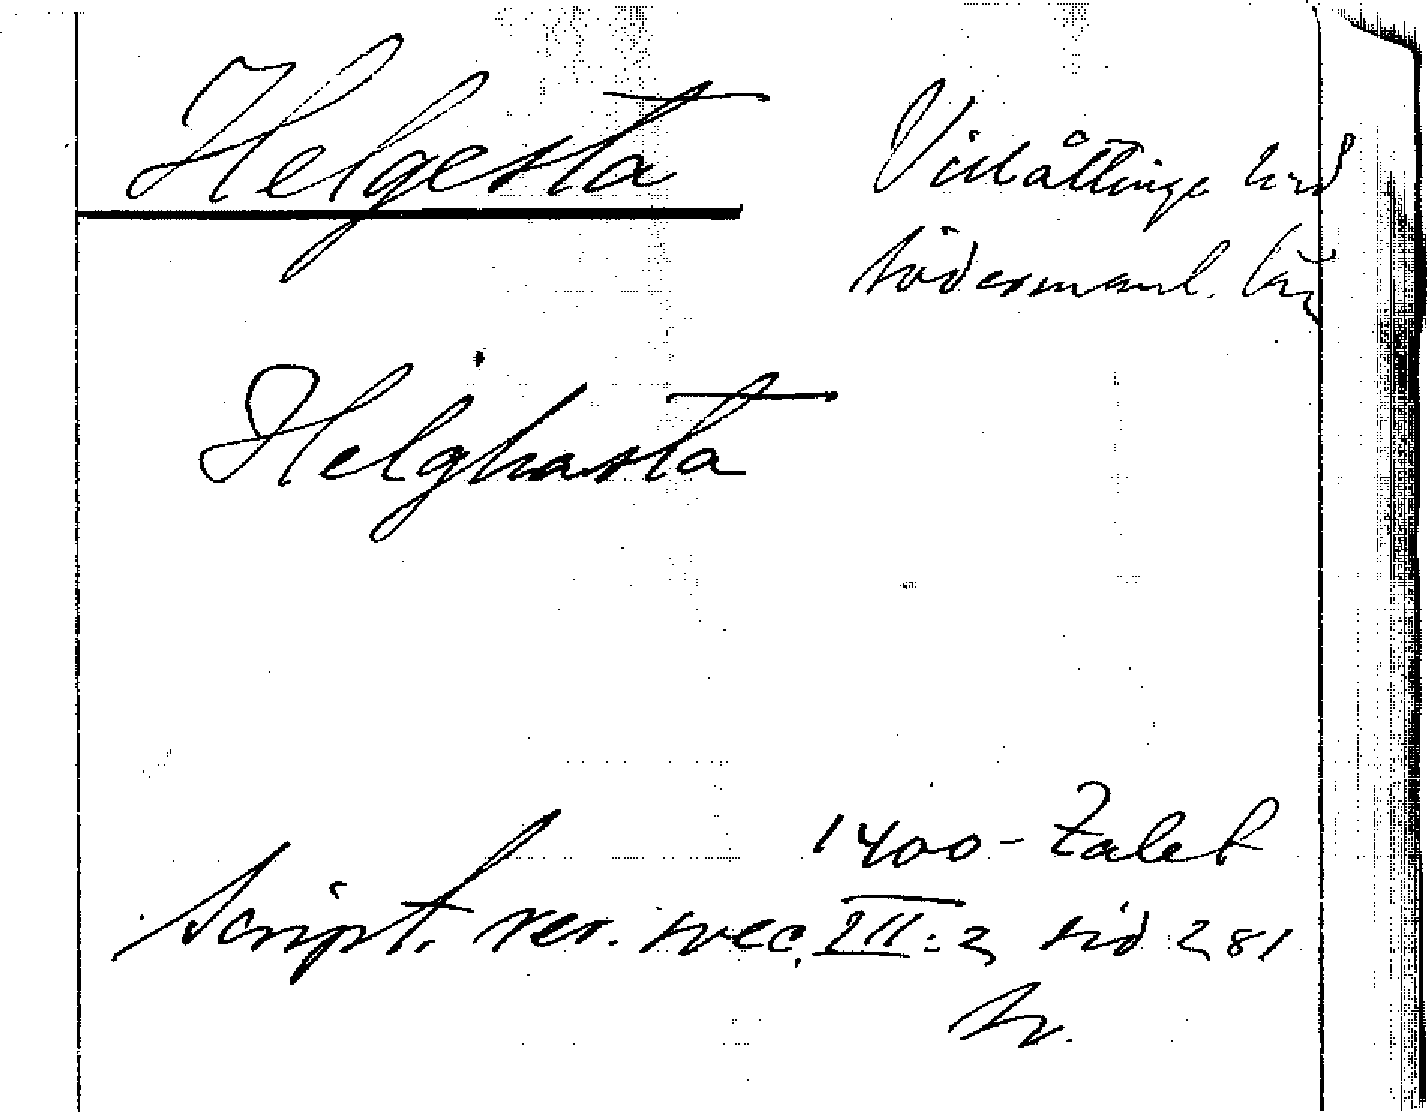 Helgesta
Villåttinge hrd
Södermanl. län
Helghasta
1400-talet
Script. rer. svec. III:2 sid 281